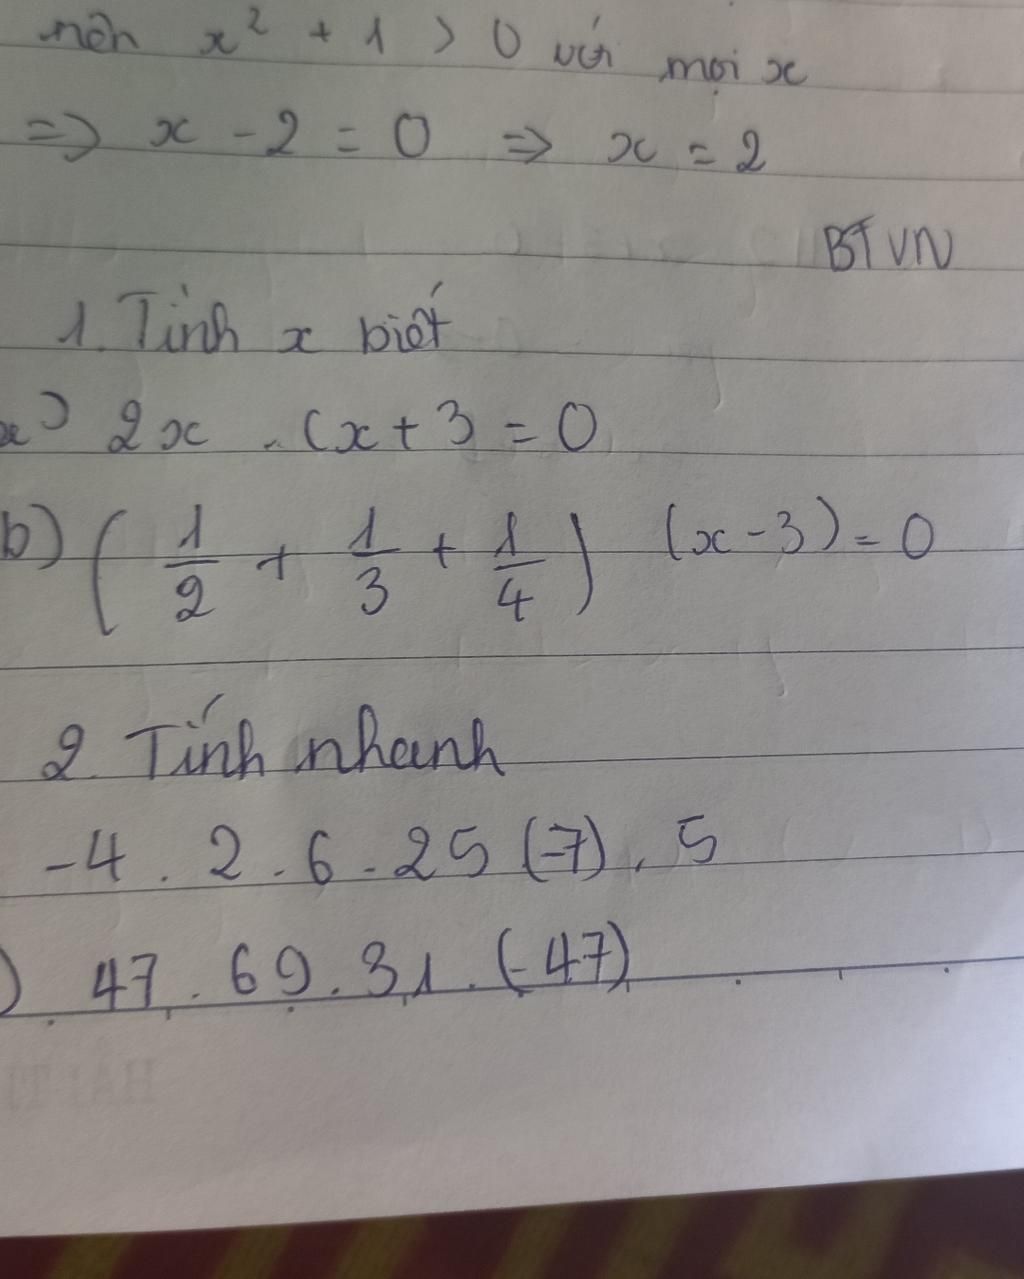 nên x² + 1 > 0 với mọi x
=> x - 2 = 0 => x = 2
BTVN
1. Tỉnh x biết
a) 2x . (x + 3 = 0
b) ( 1/2 + 1/3 + 1/4 ) (x - 3) = 0
2. Tính nhanh
-4 . 2 . 6 . 25 (-7) . 5
) 47 . 69 . 31 . (-47)